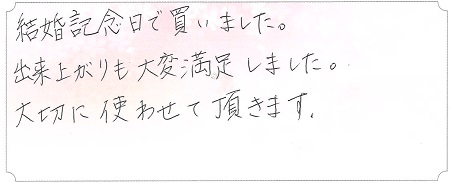 結婚記念日で買いました。
出来上がりも大変満足しました。
大切に使わせて頂きます.